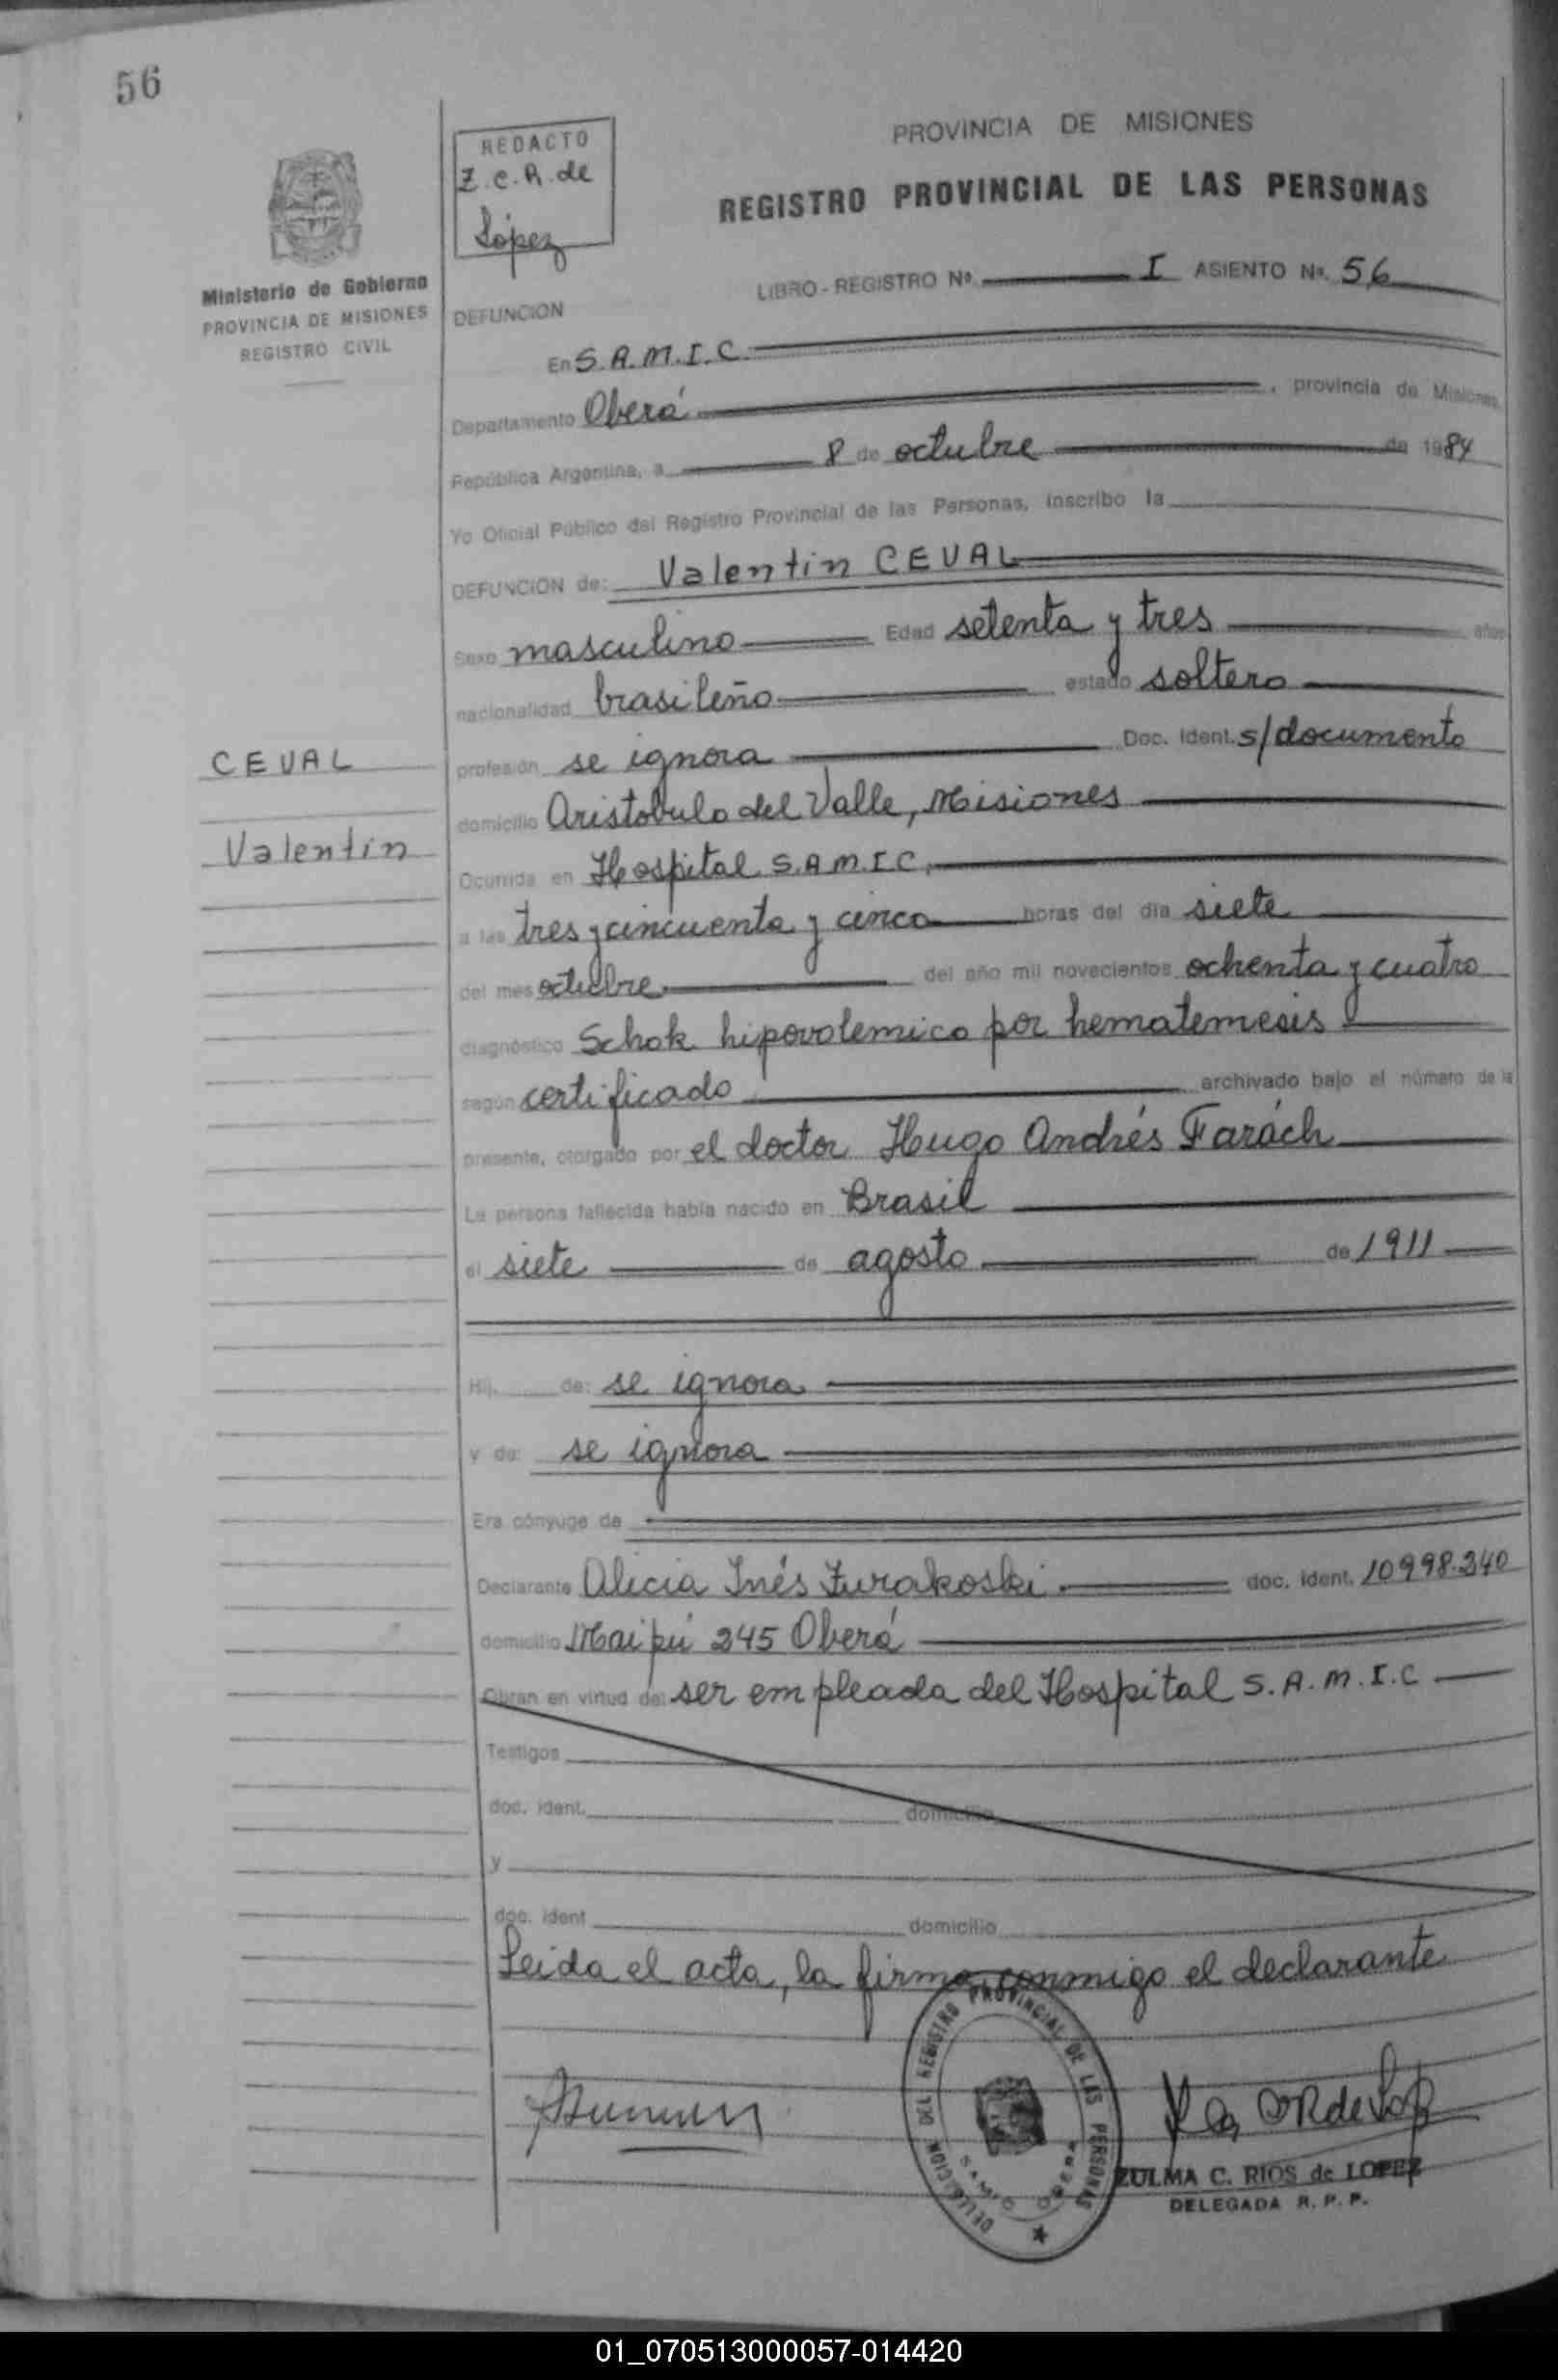 56
REDACTO
Z.C.R. de
López
Ministerio de Gobierno
PROVINCIA DE MISIONES
REGISTRO CIVIL
PROVINCIA DE MISIONES
REGISTRO PROVINCIAL DE LAS PERSONAS
LIBRO - REGISTRO Nº. I ASIENTO Nº. 56
DEFUNCION
En S.A.M.I.C.
Departamento Oberá, provincia de Misiones,
República Argentina, a 8 de octubre de 1984
Yo Oficial Público del Registro Provincial de las Personas, inscribo la
DEFUNCION de: Valentin CEVAL
Sexo masculino Edad setenta y tres años
nacionalidad brasileño estado soltero
CEVAL
profesión se ignora Doc. Ident. s/documento
domicilio Aristobulo del Valle, Misiones
Valentin
Ocurrida en Hospital S.A.M.I.C.
a las tres y cincuenta y cinco horas del día siete
del mes octubre del año mil novecientos ochenta y cuatro
diagnóstico Schok hipovolemico por hematemesis
según certificado archivado bajo el número de la
presente, otorgado por el doctor Hugo Andrés Farách
La persona fallecida había nacido en Brasil
el siete de agosto de 1911
Hij. de: se ignora
y de: se ignora
Era cónyuge de
Declarante Alicia Inés Zurakoski doc. ident. 10998.240
domicilio Maipú 245 Oberá
Obran en virtud de: ser empleada del Hospital S.A.M.I.C
Testigos
doc. ident. domicilio
y
doc. ident domicilio
Leida el acta, la firma conmigo el declarante
DELEGACION DEL REGISTRO PROVINCIAL DE LAS PERSONAS
ZULMA C. RIOS de LOPEZ
DELEGADA R. P. P.
01_070513000057-014420